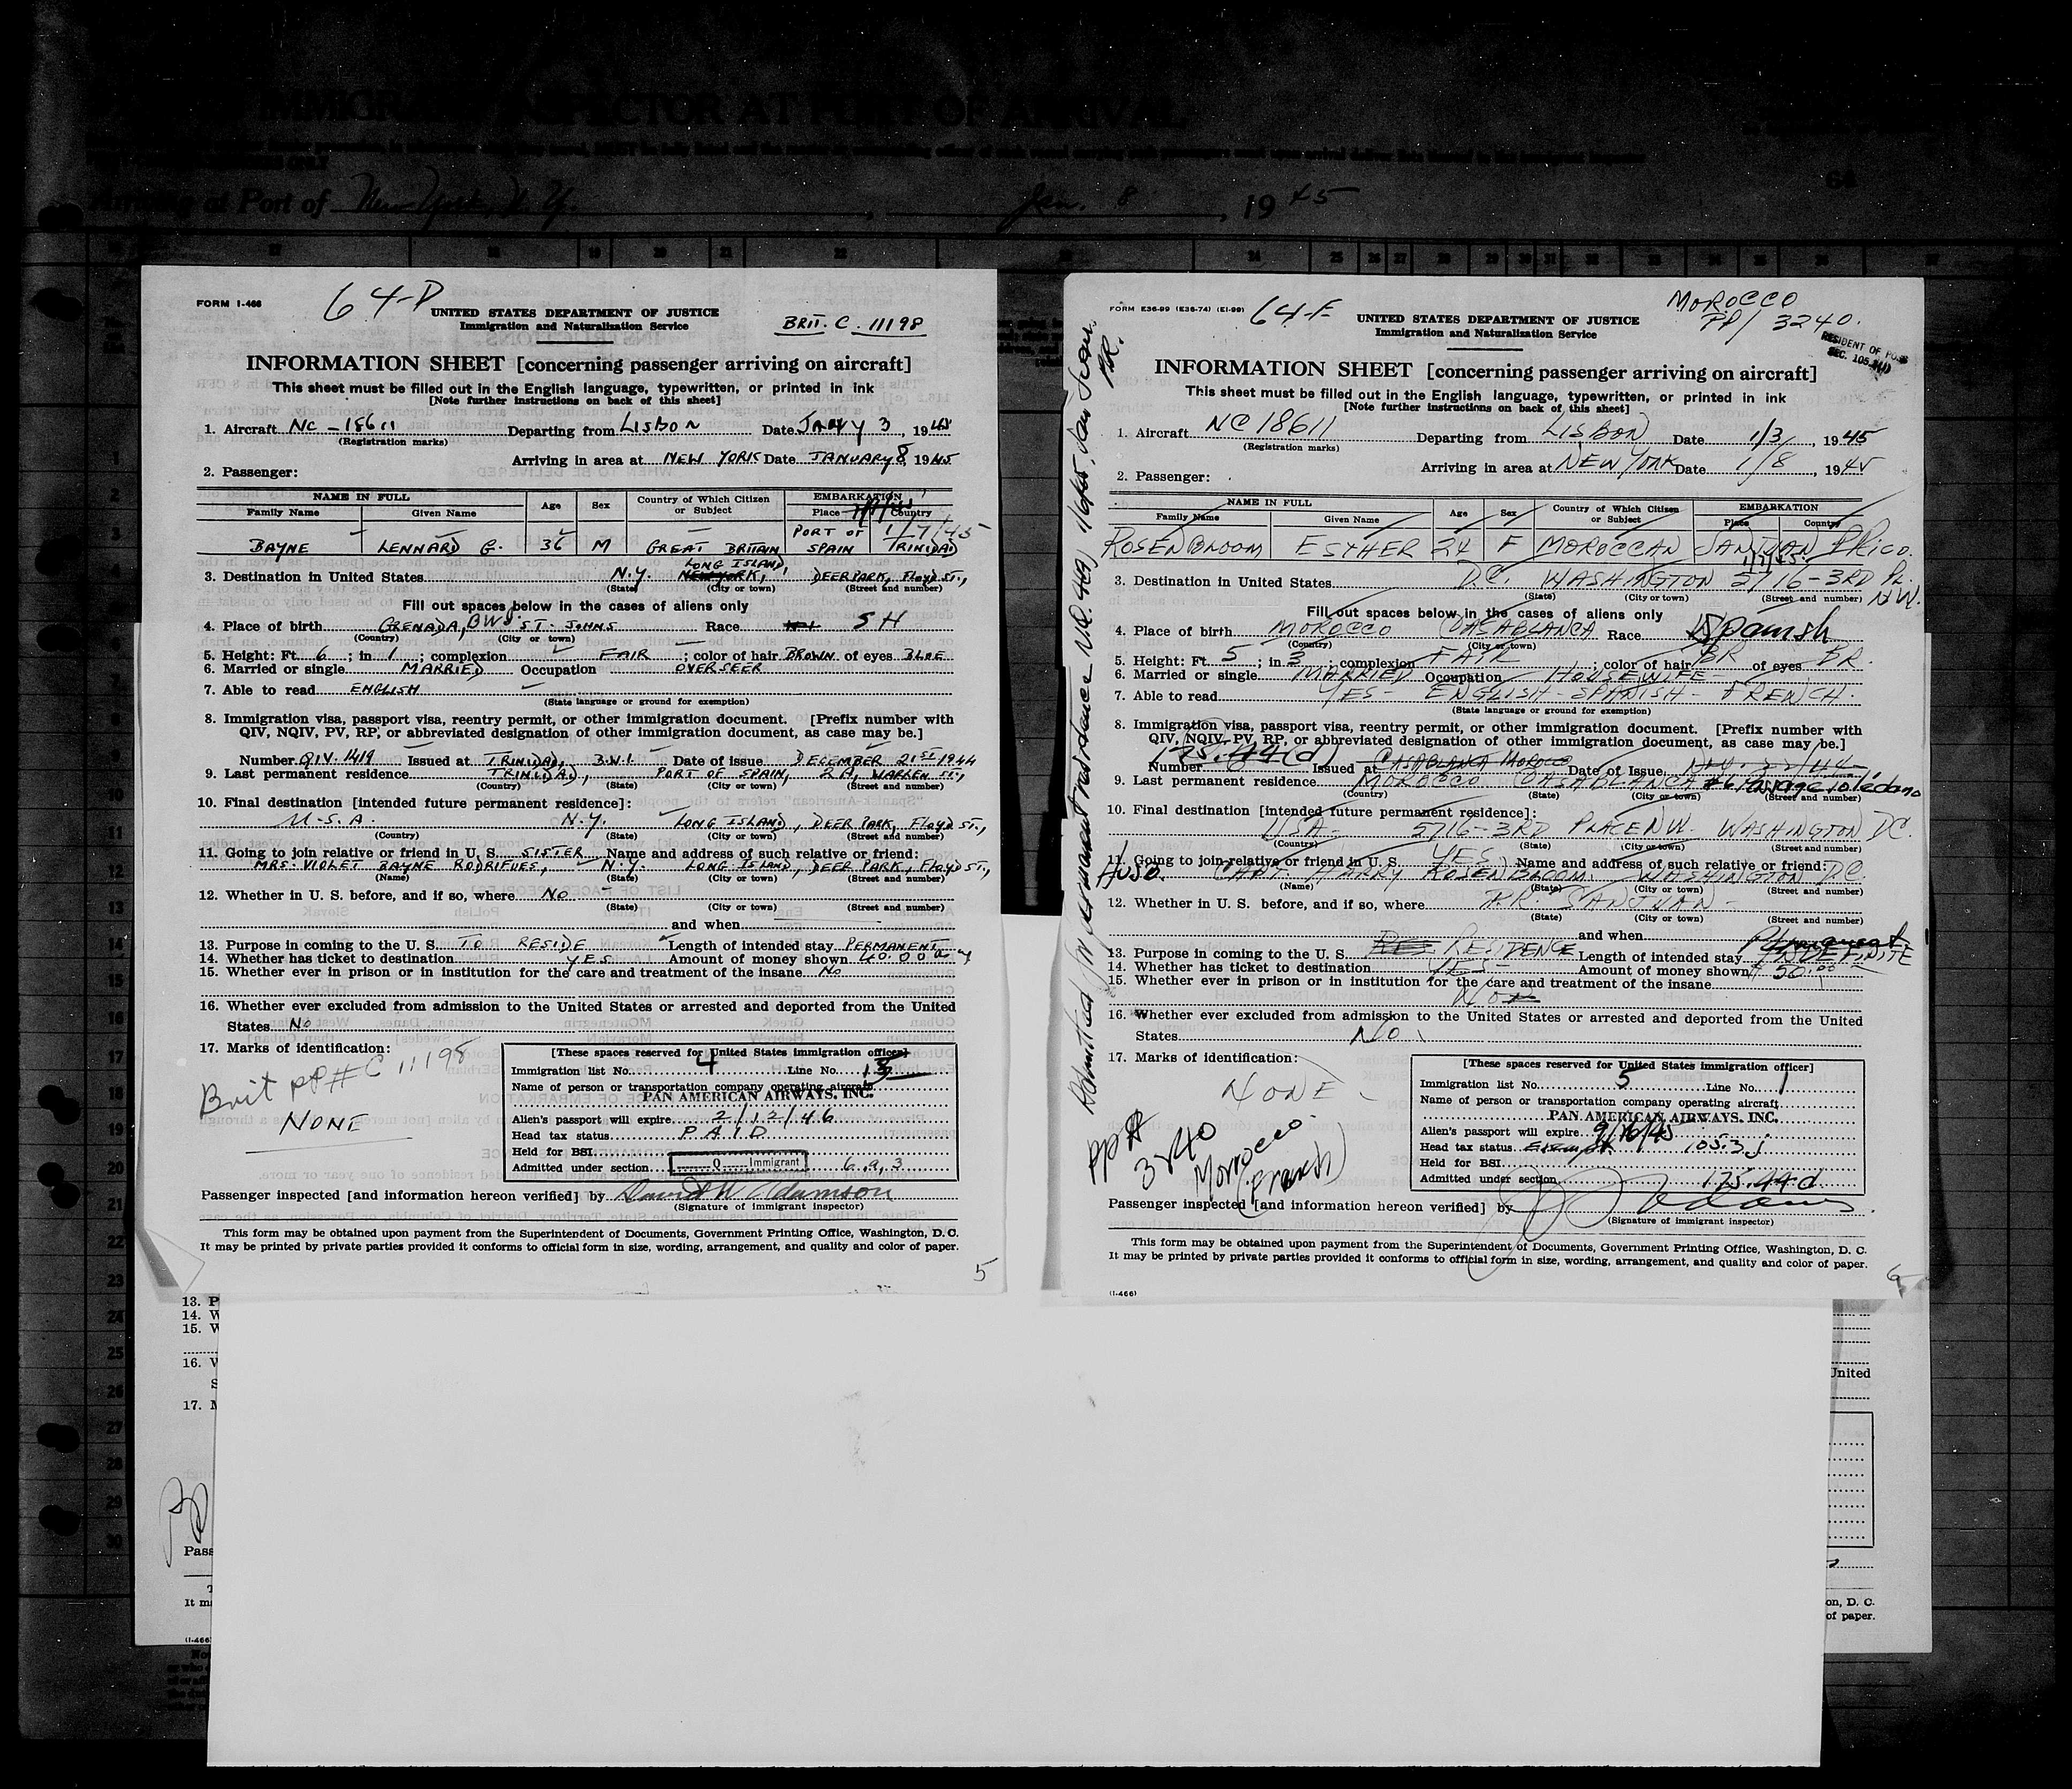 IMMIGRANT INSPECTOR AT PORT OF ARRIVAL
Arriving at Port of New York, N.Y. , Jan. 8 , 19 45
FORM I-466
64-D
UNITED STATES DEPARTMENT OF JUSTICE
Immigration and Naturalization Service
BRIT. C. 11198
INFORMATION SHEET [concerning passenger arriving on aircraft]
This sheet must be filled out in the English language, typewritten, or printed in ink
[Note further instructions on back of this sheet]
1. Aircraft NC-18611 Departing from LISBON Date JANY 3, 19
(Registration marks)
Arriving in area at NEW YORK Date JANUARY 8, 1945
2. Passenger:
NAME IN FULL Age Sex Country of Which Citizen or Subject EMBARKATION
Family Name Given Name Place Country
1/7/45
BAYNE LENNARD G. 36 M GREAT BRITAIN PORT OF SPAIN TRINIDAD
3. Destination in United States N.Y. NEW YORK, LONG ISLAND, DEER PARK, FLOYD ST.,
(State) (City or town) (Street and number)
Fill out spaces below in the cases of aliens only
4. Place of birth GRENADA, BWI. ST. JOHNS Race SH
(Country) (City or town)
5. Height: Ft. 6; in 1; complexion FAIR; color of hair BROWN of eyes BLUE
6. Married or single MARRIED Occupation OVERSEER
7. Able to read ENGLISH
(State language or ground for exemption)
8. Immigration visa, passport visa, reentry permit, or other immigration document. [Prefix number with
QIV, NQIV, PV, RP, or abbreviated designation of other immigration document, as case may be.]
Number QIV. 1419 Issued at TRINIDAD, B.W.I. Date of issue DECEMBER 21ST 1944
9. Last permanent residence TRINIDAD, PORT OF SPAIN, 2A, WARREN ST.,
(Country) (State) (City or town) (Street and number)
10. Final destination [intended future permanent residence]:
U.S.A. N.Y. LONG ISLAND, DEER PARK, FLOYD ST.,
(Country) (State) (City or town) (Street and number)
11. Going to join relative or friend in U. S. SISTER Name and address of such relative or friend:
MRS. VIOLET BAYNE RODRIFUES, N.Y. LONG ISLAND, DEER PARK, FLOYD ST.,
(Name) (State) (City or town) (Street and number)
12. Whether in U. S. before, and if so, where NO
(State) (City or town) (Street and number)
and when
13. Purpose in coming to the U. S. TO RESIDE Length of intended stay PERMANENT
14. Whether has ticket to destination YES Amount of money shown 40.00
15. Whether ever in prison or in institution for the care and treatment of the insane NO
16. Whether ever excluded from admission to the United States or arrested and deported from the United
States NO
17. Marks of identification:
Brit pp# C 11198
NONE
[These spaces reserved for United States immigration officer]
Immigration list No. 4 Line No.
Name of person or transportation company operating aircraft
PAN AMERICAN AIRWAYS. INC.
Alien's passport will expire 2/12/46
Head tax status PAID
Held for BSI
Admitted under section Q Immigrant 6.a.3
Passenger inspected [and information hereon verified] by David W Adamson
(Signature of immigrant inspector)
This form may be obtained upon payment from the Superintendent of Documents, Government Printing Office, Washington, D. C.
It may be printed by private parties provided it conforms to official form in size, wording, arrangement, and quality and color of paper.
5
FORM E36-99 (E36-74) (EI-99)
64-E
UNITED STATES DEPARTMENT OF JUSTICE
Immigration and Naturalization Service
MOROCCO
PP/ 3240.
RESIDENT OF
SEC. 105.3(J)
INFORMATION SHEET [concerning passenger arriving on aircraft]
This sheet must be filled out in the English language, typewritten, or printed in ink
[Note further instructions on back of this sheet]
1. Aircraft NC18611 Departing from LISBON Date 1/3/, 1945
(Registration marks)
Arriving in area at NEW YORK Date 1/8, 1945
2. Passenger:
NAME IN FULL Age Sex Country of Which Citizen or Subject EMBARKATION
Family Name Given Name Place Country
ROSENBLOOM ESTHER 24 F MOROCCAN SAN JUAN P. RICO.
3. Destination in United States D.C. WASHINGTON 5716-3RD PL. N.W.
(State) (City or town) (Street and number)
Fill out spaces below in the cases of aliens only
4. Place of birth MOROCCO CASABLANCA Race Spanish
(Country) (City or town)
5. Height: Ft. 5; in 3; complexion FAIR; color of hair BR of eyes BR.
6. Married or single MARRIED Occupation HOUSEWIFE-
7. Able to read YES- ENGLISH-SPANISH-FRENCH.
(State language or ground for exemption)
8. Immigration visa, passport visa, reentry permit, or other immigration document. [Prefix number with
QIV, NQIV, PV, RP, or abbreviated designation of other immigration document, as case may be.]
175.44(d)
Number Issued at CASABLANCA MOROCCO Date of Issue
9. Last permanent residence MOROCCO CASABLANCA #6 Passage Tolédano
(Country) (State) (City or town) (Street and number)
10. Final destination [intended future permanent residence]:
USA- 5716-3RD PLACE NW. WASHINGTON DC.
(Country) (State) (City or town) (Street and number)
11. Going to join relative or friend in U. S. YES Name and address of such relative or friend:
Husb. CAPT. HARRY ROSENBLOOM. WASHINGTON D.C.
(Name) (State) (City or town) (Street and number)
12. Whether in U. S. before, and if so, where P.R. SAN JUAN-
(State) (City or town) (Street and number)
and when
13. Purpose in coming to the U. S. RES RESIDENCE Length of intended stay INDEFINITE Permanent
14. Whether has ticket to destination YES- Amount of money shown $50.00
15. Whether ever in prison or in institution for the care and treatment of the insane
NO
16. Whether ever excluded from admission to the United States or arrested and deported from the United
States NO
17. Marks of identification:
NONE
PP#
3240
Morocco
(French)
[These spaces reserved for United States immigration officer]
Immigration list No. 5 Line No. 1
Name of person or transportation company operating aircraft
PAN AMERICAN AIRWAYS. INC.
Alien's passport will expire 9/16/45
Head tax status Exempt 105.3j
Held for BSI
Admitted under section 175.44d
Passenger inspected [and information hereon verified] by
(Signature of immigrant inspector)
This form may be obtained upon payment from the Superintendent of Documents, Government Printing Office, Washington, D. C.
It may be printed by private parties provided it conforms to official form in size, wording, arrangement, and quality and color of paper.
(I-466)
Admitted for permanent residence San Juan, P.R.
13. P
14. W
15. W
16. W
S
17. M
Pass
It ma
(I-466)
United
on, D. C.
of paper.